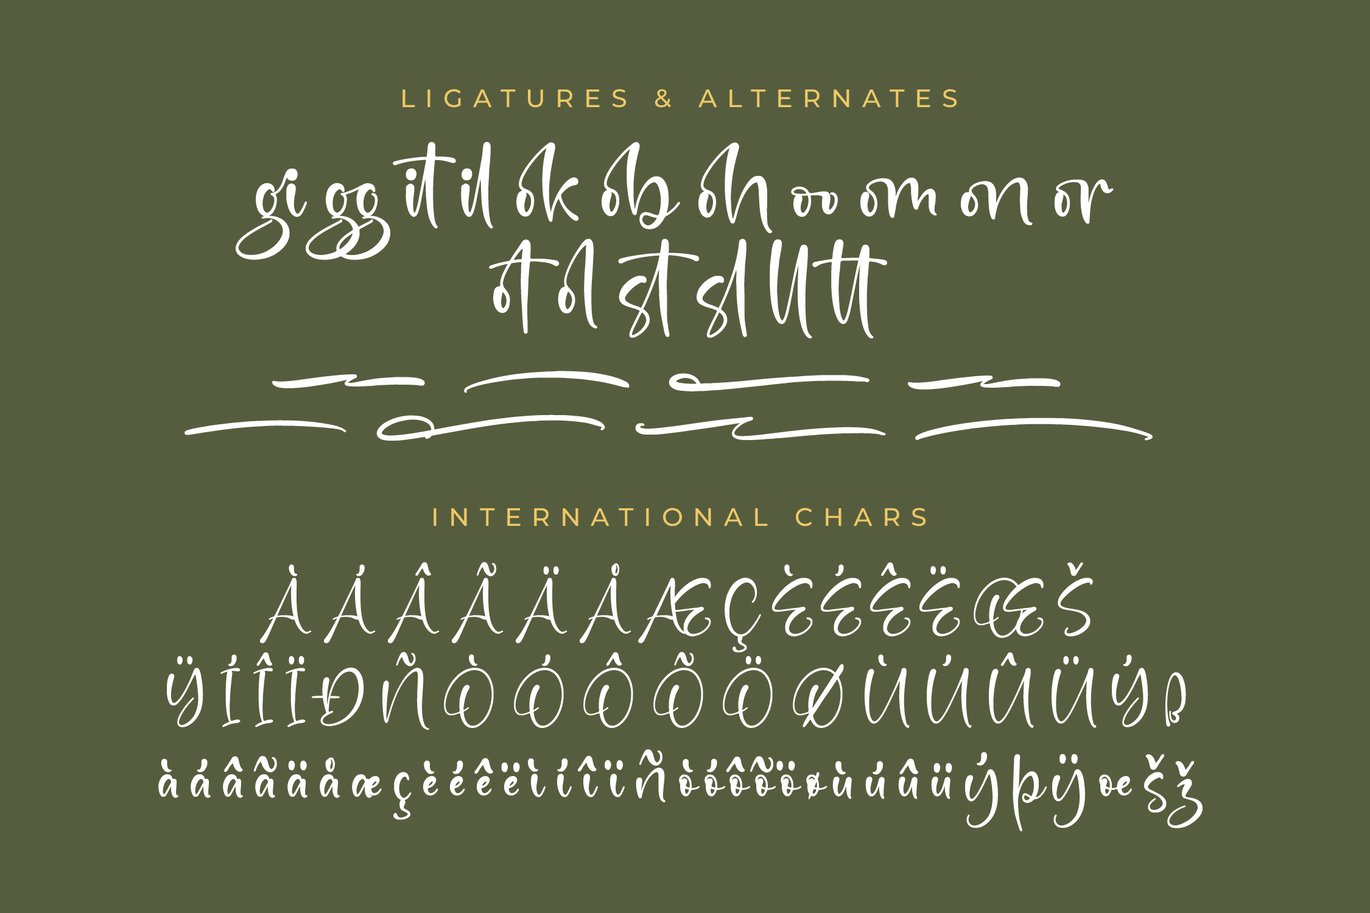 LIGATURES & ALTERNATES
gi gg it il ok ob oh oo om on or
ot ol st sl ll tt
INTERNATIONAL CHARS
À Á Â Ã Ä Å Æ Ç È É Ê Ë Œ Š
Ÿ Í Î Ï Ð Ñ Ò Ó Ô Õ Ö Ø Ù Ú Û Ü Ý ß
à á â ã ä å æ ç è é ê ë ì í î ï ñ ò ó ô õ ö ø ù ú û ü ý þ ÿ œ š ž